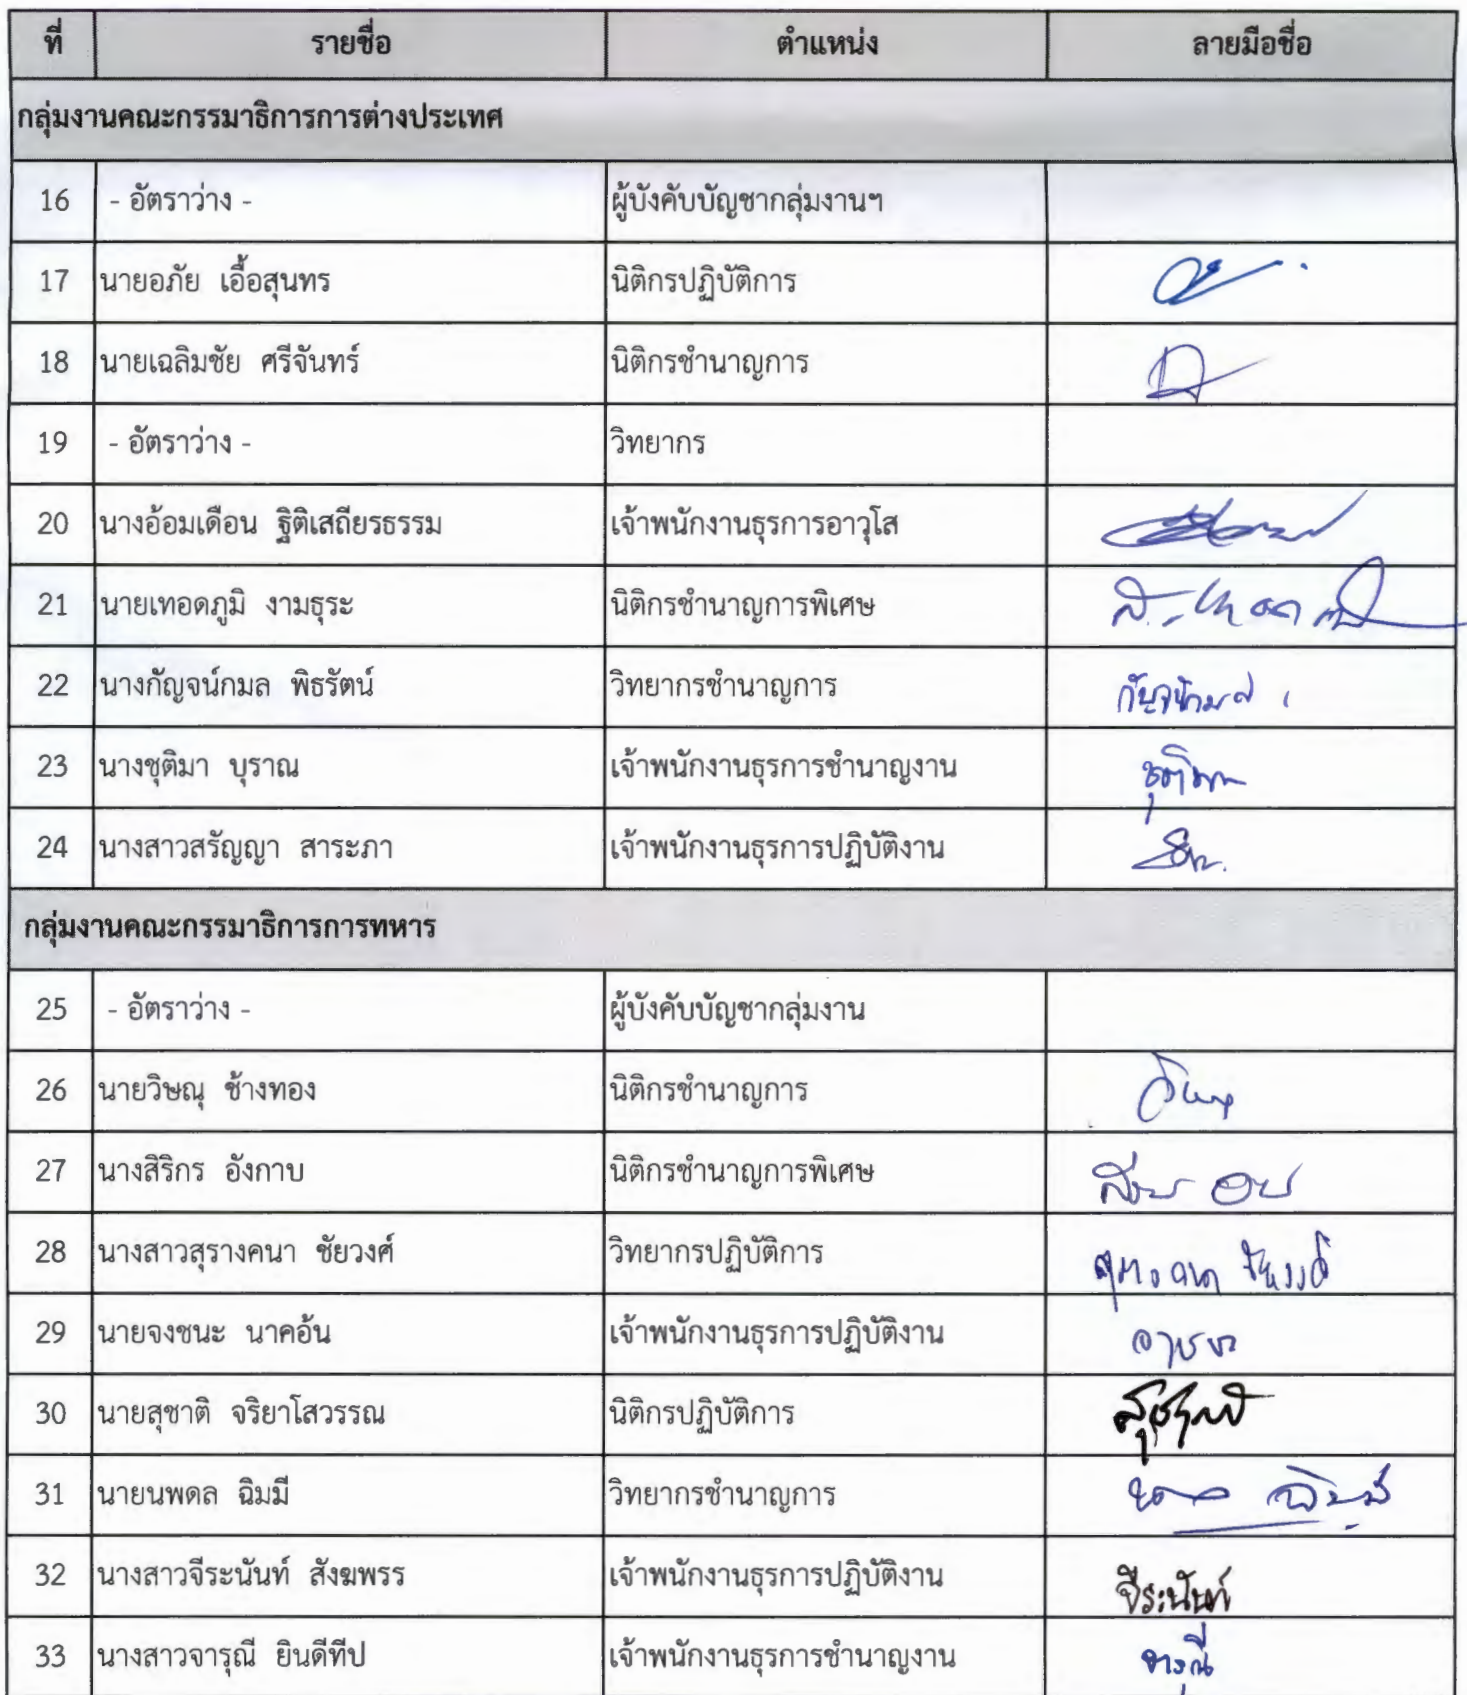 ที่ รายชื่อ ตำแหน่ง ลายมือชื่อ
กลุ่มงานคณะกรรมาธิการการต่างประเทศ
16 - อัตราว่าง - ผู้บังคับบัญชากลุ่มงานฯ
17 นายอภัย เอื้อสุนทร นิติกรปฏิบัติการ
18 นายเฉลิมชัย ศรีจันทร์ นิติกรชำนาญการ
19 - อัตราว่าง - วิทยากร
20 นางอ้อมเดือน ฐิติเสถียรธรรม เจ้าพนักงานธุรการอาวุโส
21 นายเทอดภูมิ งามธุระ นิติกรชำนาญการพิเศษ
22 นางกัญจน์กมล พิธรัตน์ วิทยากรชำนาญการ กัญจน์กมล
23 นางชุติมา บุราณ เจ้าพนักงานธุรการชำนาญงาน ชุติมา
24 นางสาวสรัญญา สาระภา เจ้าพนักงานธุรการปฏิบัติงาน
กลุ่มงานคณะกรรมาธิการการทหาร
25 - อัตราว่าง - ผู้บังคับบัญชากลุ่มงาน
26 นายวิษณุ ช้างทอง นิติกรชำนาญการ
27 นางสิริกร อังกาบ นิติกรชำนาญการพิเศษ
28 นางสาวสุรางคนา ชัยวงศ์ วิทยากรปฏิบัติการ สุรางคนา ชัยวงศ์
29 นายจงชนะ นาคอ้น เจ้าพนักงานธุรการปฏิบัติงาน
30 นายสุชาติ จริยาโสวรรณ นิติกรปฏิบัติการ สุชาติ
31 นายนพดล ฉิมมี วิทยากรชำนาญการ
32 นางสาวจีระนันท์ สังฆพรร เจ้าพนักงานธุรการปฏิบัติงาน จีระนันท์
33 นางสาวจารุณี ยินดีทีป เจ้าพนักงานธุรการชำนาญงาน จารุณี